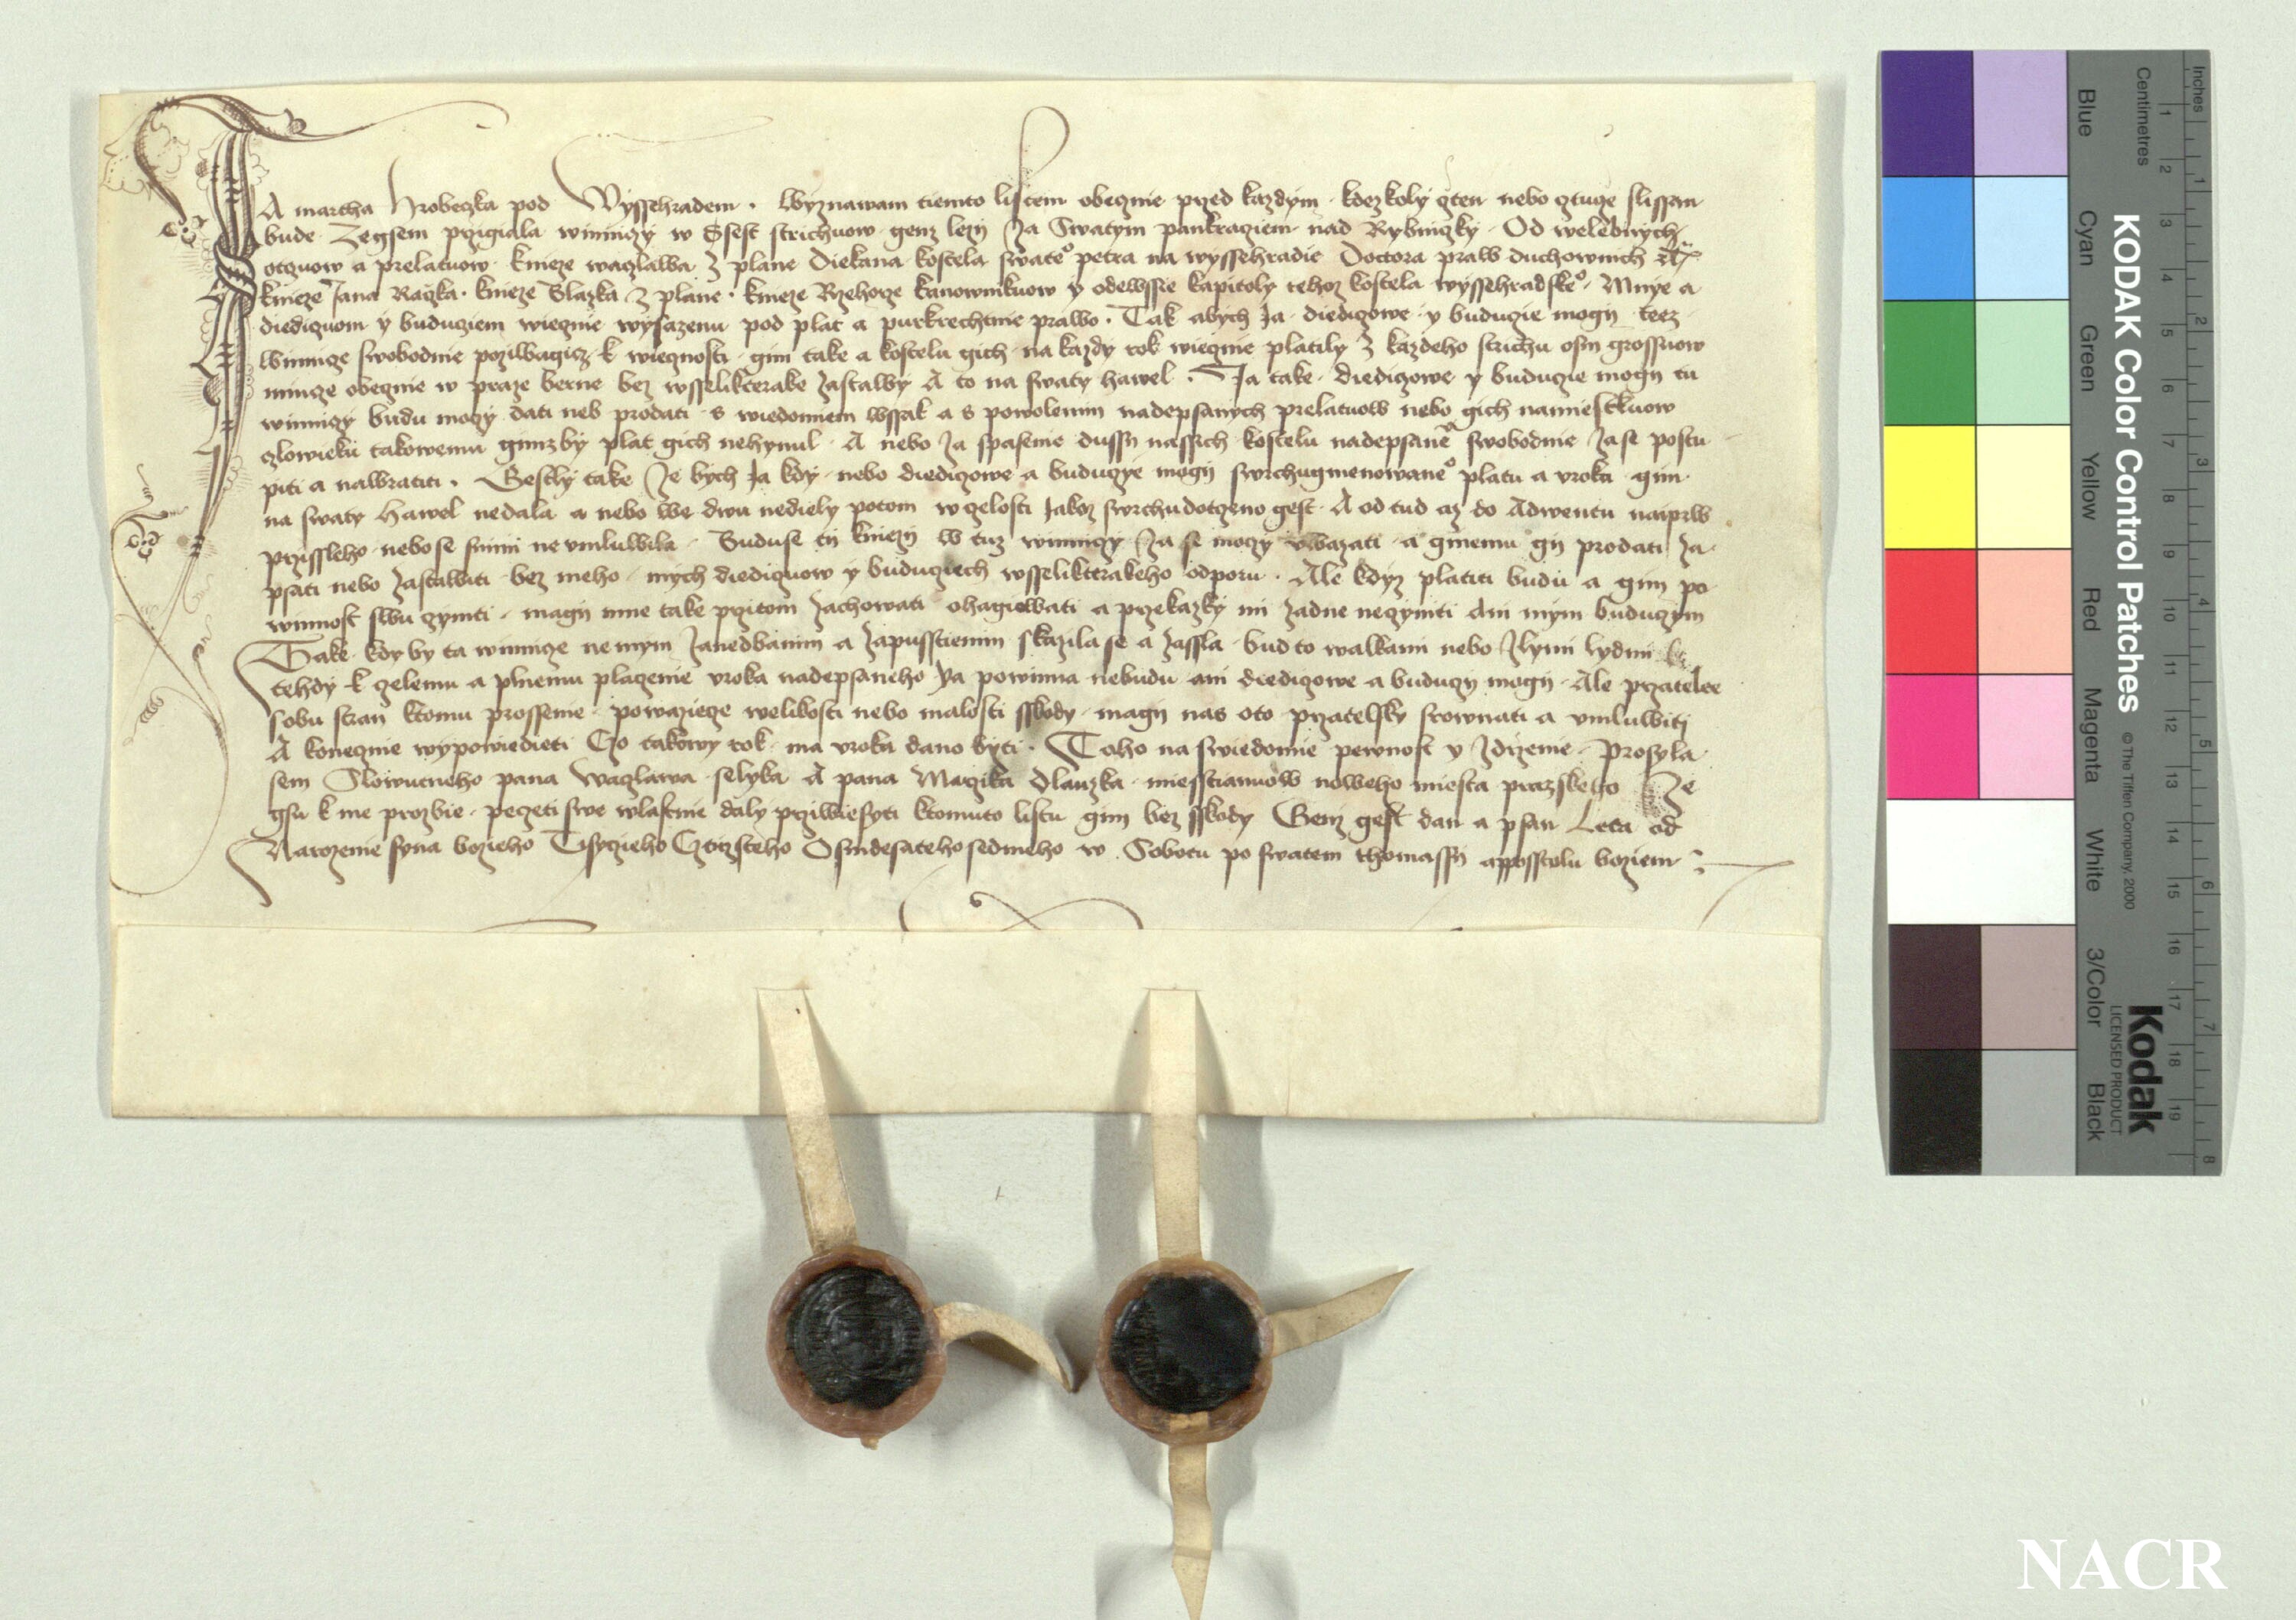 JA martha Hrobczka pod Wyssehradem · Wyznawam tiemto listem obecznie przed kazdym · kdezkoly cten nebo cztuze slissan
bude Ze gsem przigiala winniczy w Ssest strichuow genz lezy Za Swatym pankraziem nad Rybniczky · Od welebnych
otczuow a prelatuow · knieze waczlawa z plane Diekana kostela swateo petra na wyssehradie Doctora praw duchownich
knieze Jana Raczka · knieze Blazka z plane · knieze Rzehorze kanownikuow y odewssie kapitoly tehoz kostela wyssehradskeo · Mnye a
diediczuom y buduciem wiecznie wysazenu pod plat a purkrechtnie prawo · Tak abych Ja · diediczowe y buduczie mogy teez
winnicze swobodnie poziwagicz k wiecznosti · gim take a kostelu gich na kazdy rok wiecznie platily z kazdeho strichu osm grossuow
mincze obecznie w praze berne bez wsselikterake zastawy A to na swaty hawel · Ja take · diediczowe y buduczie mogy tu
winniczy budu mogy dati neb prodati s wiedomiem wssak a s powolenim nadepsanych prelatuow nebo gich namiestkuow
czlowieku takowemu gimzby plat gich nehynul · A nebo za spasenie dussy nassich kostelu nadepsane swobodnie zase postu
piti a nawratiti · Gestly take ze bych Ja kdy · nebo diediczowe a buduczye mogy swrchugmenowaneo platu a uroka · gim
na swaty Hawel nedala a nebo we dwu nediely potom w czelosti Jakoz swrchudotczeno gest · A od tud az do Adwentu naiprw
przissleho nebo se snimi ne umluwila · Buduse ty kniezy w tuz winniczy Za se mogy uwazati · a ginemu gy prodati Za
psati nebo zastawiti bez meho · mych diediczuow y buduciech wsselikterakeho odporu · Ale kdyz platiti budu a gim po
winnost swu czyniti · magy mne take przitom zachowati ohagiowati a przekazky mi zadne neczyniti Ani mym buduczym
Take · kdy by ta winnicze ne mym zanedbanim a zapusstienim skazila se a zassla · bud to walkami nebo zlymi lydmi
tehdy k czelemu a plnemu placzenie uroka nadepsaneho Ya powinna nebudu ani diediczowe a buduczy mogy · Ale przatelee
sobu stran ktomu prosseme · powaziecze welikosti nebo malosti sskody · magy nas oto przatelsky srownati a umluwiti
A koneczne wypowiedieti Czo takowy rok · ma uroka dano byti · Toho na swiedomie pewnost y zdrzenie · Prosyla
sem Slowutneho pana Waczlawa selyka A pana Maczika Dlauzka · miesstianuow noweho miesta prazskeho Ze
gsu k me prozbie · peczeti swe wlastnie daly prziwiesyti ktomuto listu gim bez sskody Genz gest dan a psan Leta od
Narozenie syna bozieho Tisyczieho Cztirzsteho Osmdesateho sedmeho w Sobotu po swatem thomassy apposstolu boziem
Inches
Centimetres
Blue
Cyan
Green
Yellow
Red
Magenta
White
3/Color
Black
KODAK Color Control Patches
© The Tiffen Company, 2000
Kodak
LICENSED PRODUCT
1 2 3 4 5 6 7 8 9 10 11 12 13 14 15 16 17 18 19
1 2 3 4 5 6 7 8
NACR